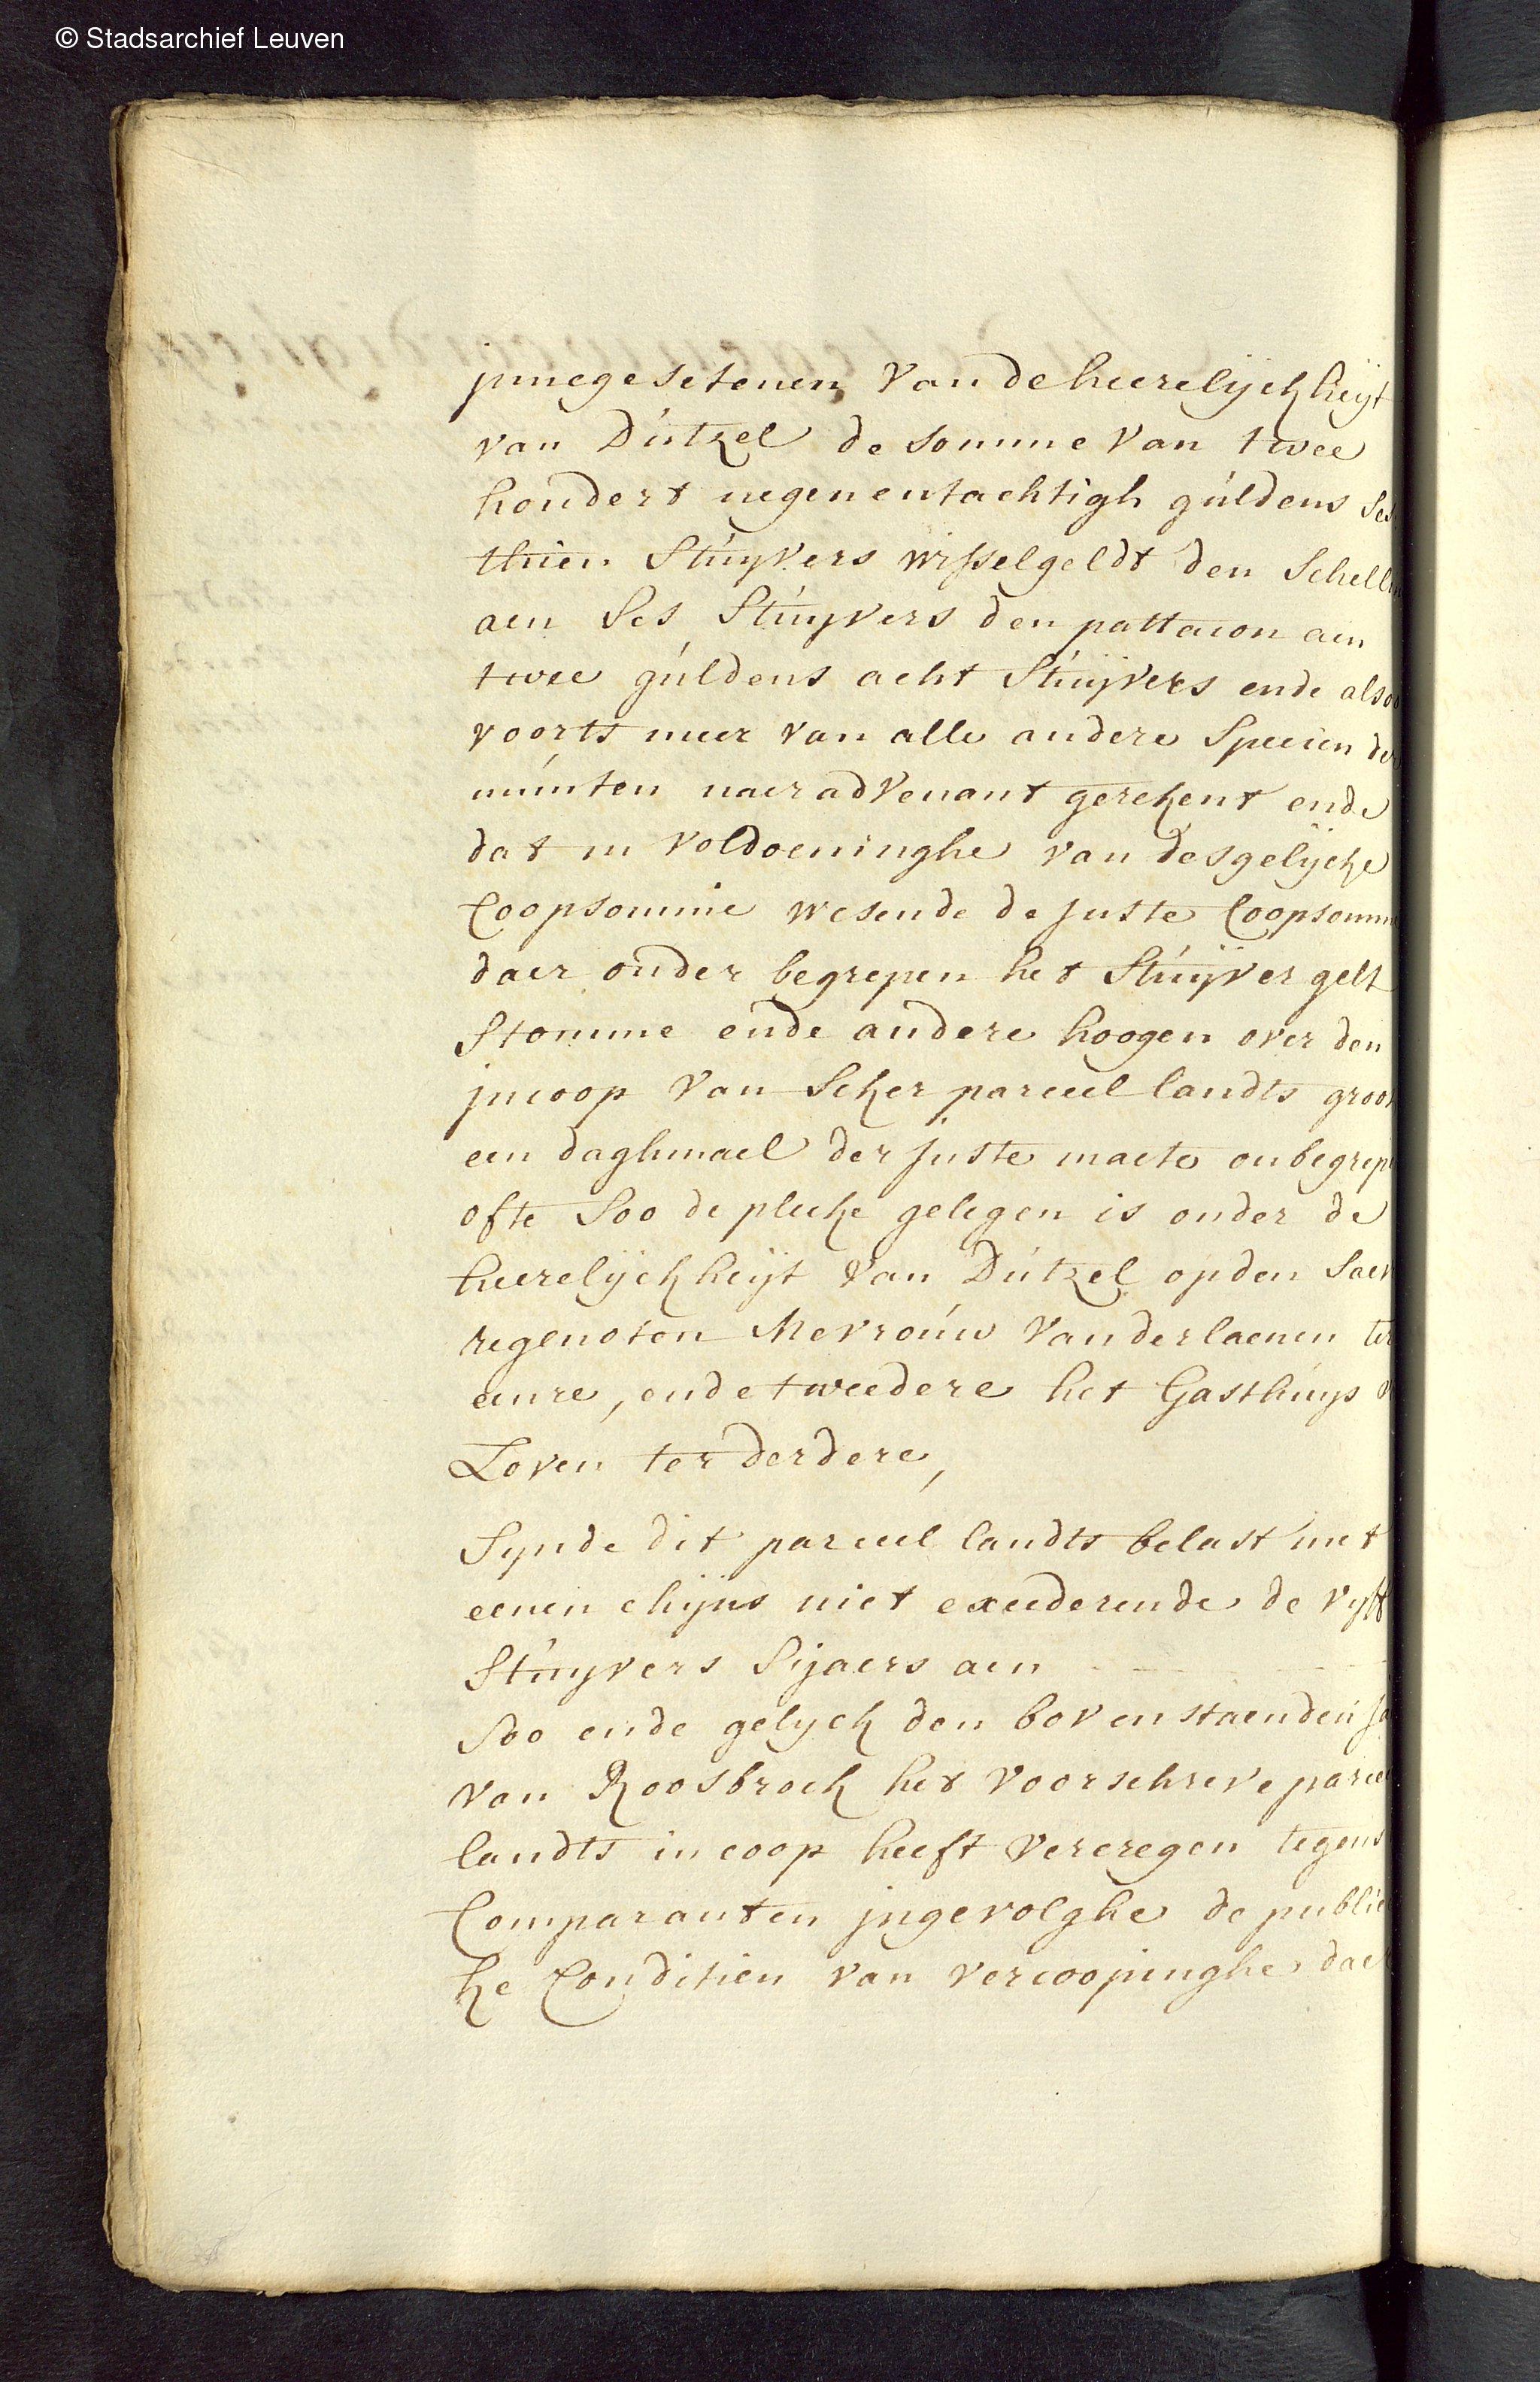 © Stadsarchief Leuven
jnnegesetenen van de heerelijckheijt
van Dútzel de somme van twee
hondert negenentachtigh gúldens ses
thien Stúyvers wisselgeldt den Schell
aen Ses Stúyvers den pattacon aen
twee gúldens acht Stúijvers ende alsoo
voorts meer van alle andere Specien de
múnten naer advenant gerekent ende
dat in voldoeninghe van desgelijcke
Coopsomme wesende de juste Coopsomm
daer onder begrepen het Stúijver gelt
Stomme ende andere hoogen over den
jncoop van Seker parceel landts groo
een daghmael der juste maete onbegrep
ofte Soo de plecke gelegen is onder de
heerelijckheijt van Dútzel op den Saev
regenoten Mevroúw Vanderlaenen ter
eenre, ende tweedere het Gasthúys
Loven ter derdere,
Synde dit parceel landts belast met
eenen chijns niet exeederende de vyff
Stúyvers Sijaers aen
Soo ende gelyck den bovenstaenden
van Roosbroeck het voorschreve parcee
landts in coop heeft vercregen tegens
Comparanten jngevolghe de publie
ke Conditien van vercoopinghe daer